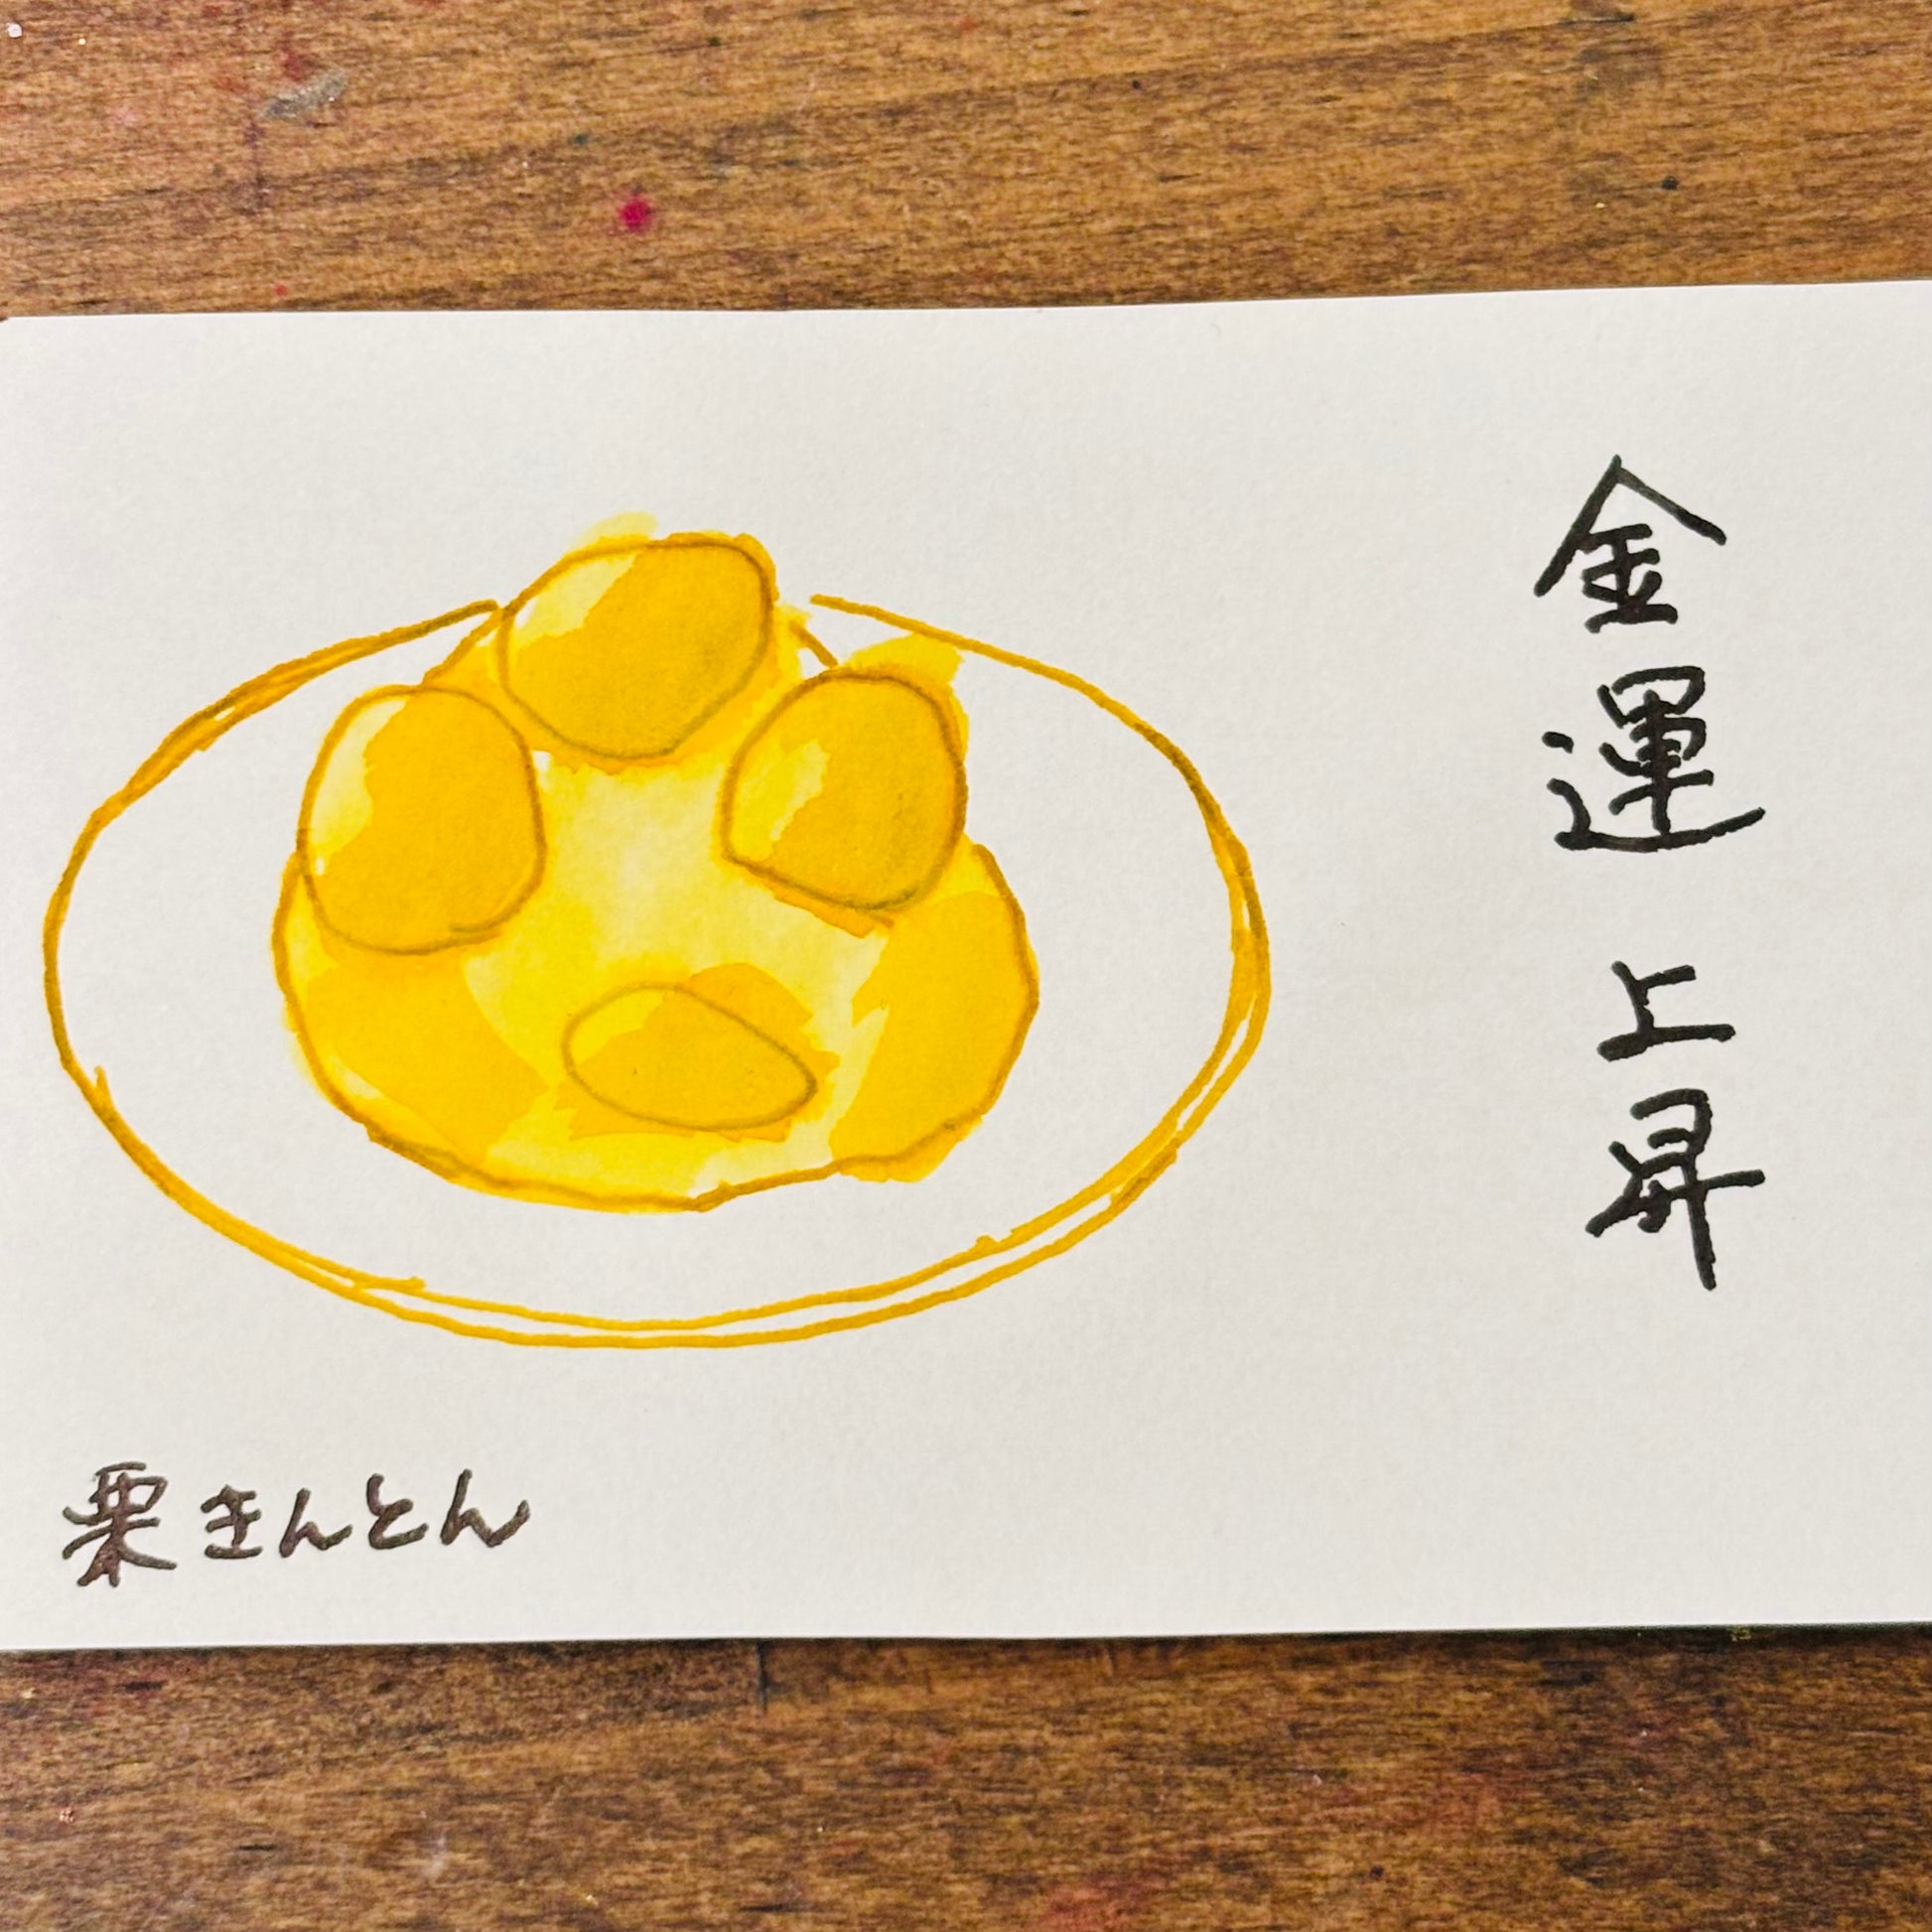 金運上昇
栗きんとん